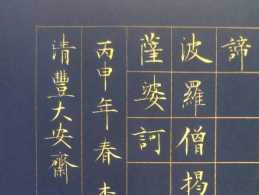 諦
波羅僧揭
薩婆訶
丙申年春
清豐大安齋